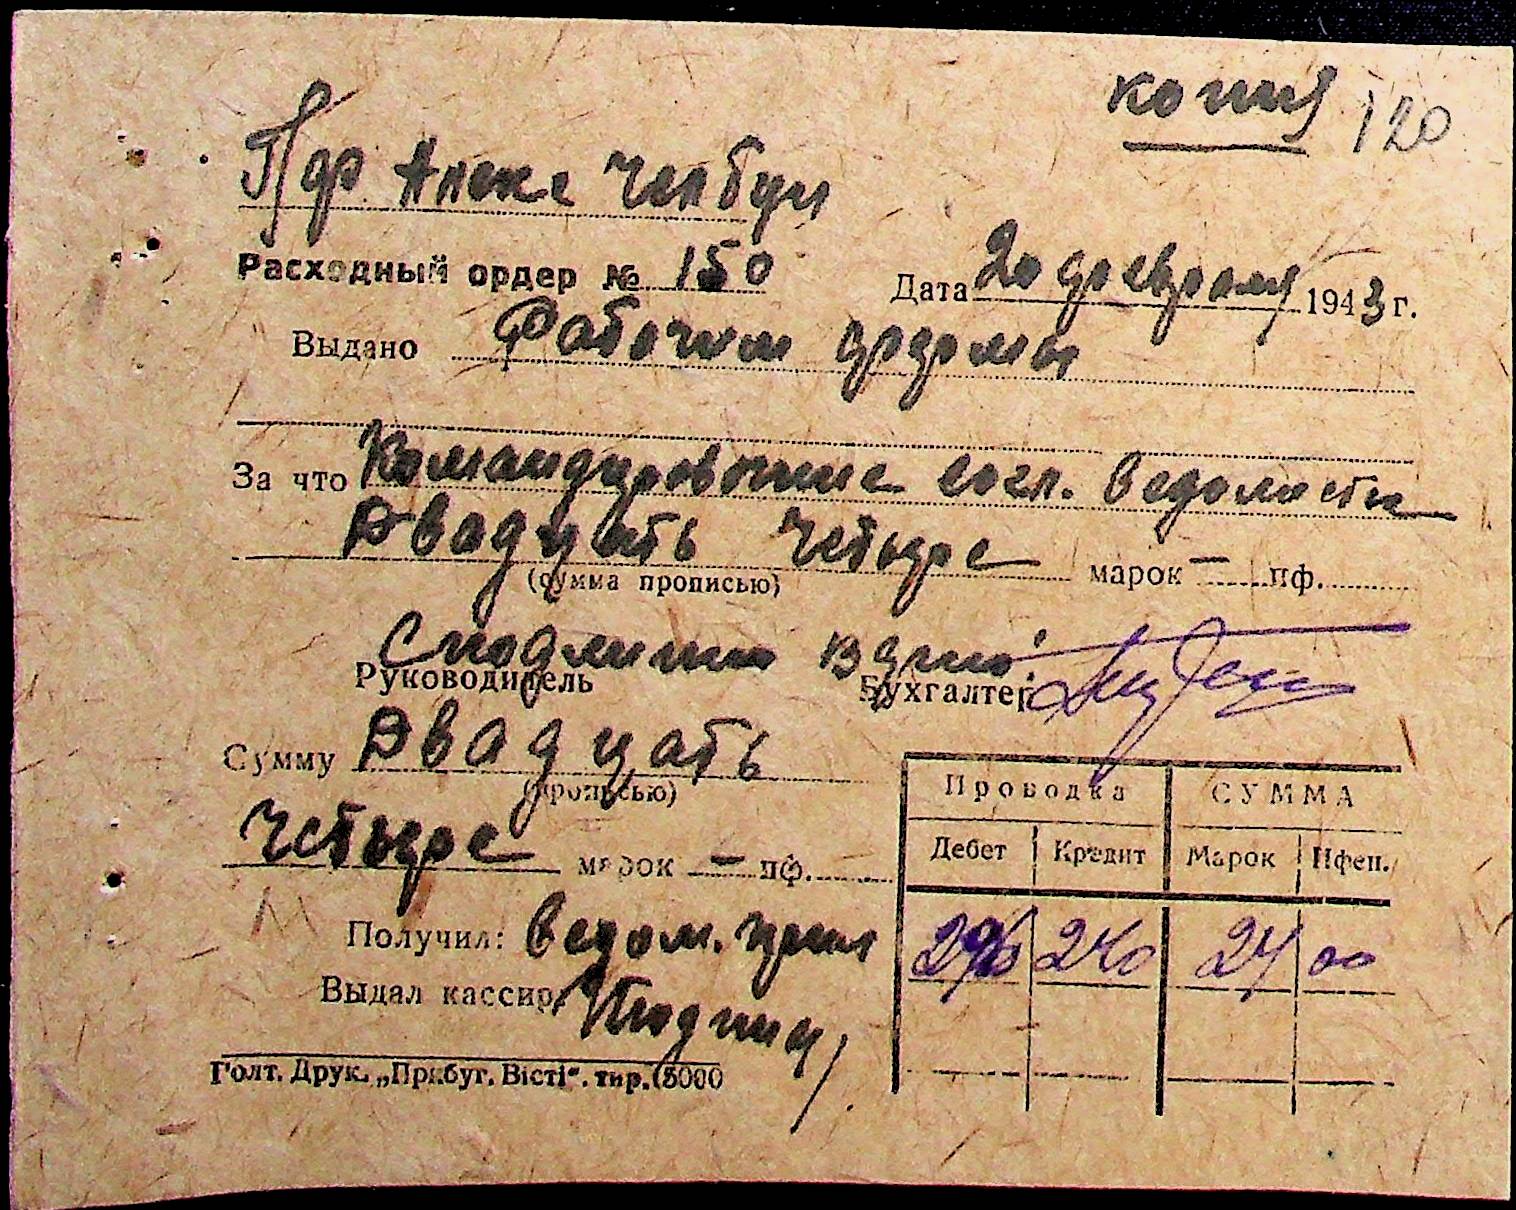 копия 120
Пф Алекс Челбур
Расходный ордер № 150 Дата 20 февраля 1943 г.
Выдано Рабочим фирмы
За что Командировочние согл. ведомости
Двадцать четыре марок — пф.
(сумма прописью)
С подлинны
Руководитель Бухгалтер
Сумму Двадцать
(прописью)
четыре марок — пф.
Проводка СУММА
Дебет Кредит Марок Пфен.
240 24 00
Получил: ведом.
Выдал кассир
Голт. Друк. „Прибуг. Вісті“. тир. 5000